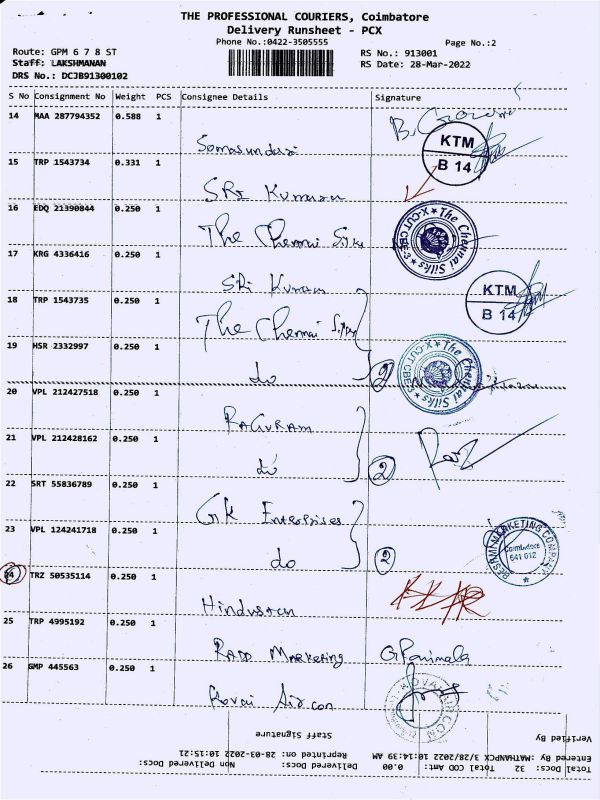 THE PROFESSIONAL COURIERS, Coimbatore
Delivery Runsheet - PCX
Phone No.:0422-3505555
Page No.:2
Route: GPM 6 7 8 ST
RS No.: 913001
Staff: LAKSHMANAN
RS Date: 28-Mar-2022
DRS No.: DCJB91300102
S No Consignment No Weight PCS Consignee Details Signature
14 MAA 287794352 0.588 1
Somasundar
KTM
B 14
15 TRP 1543734 0.331 1
SRI Kumaran
16 EDQ 21390844 0.250 1
The Chennai Silks
★ The Chennai Silks ★ X-CUT CBE-3
17 KRG 4336416 0.250 1
SRi Kumaran
KTM
B 14
18 TRP 1543735 0.250 1
The Chennai Silks
19 HSR 2332997 0.250 1
do
2
★ The Chennai Silks ★ X-CUT CBE-3
20 VPL 212427518 0.250 1
RAGURAM
21 VPL 212428162 0.250 1
do
2
22 SRT 55836789 0.250 1
GK Enterprises
23 VPL 124241718 0.250 1
do
2
MARKETING COMPANY
Coimbatore
641 012
24 TRZ 50535114 0.250 1
Hindustan
25 TRP 4995192 0.250 1
Marketing
26 GMP 445563 0.250 1
Kovai Aircon
Verified By
Staff Signature
Entered By : MATHANPCX 3/28/2022 10:14:39 AM
Reprinted on: 28-03-2022 10:15:21
Total Docs: 32 Total COD Amt: 0.00
Delivered Docs:
Non Delivered Docs: